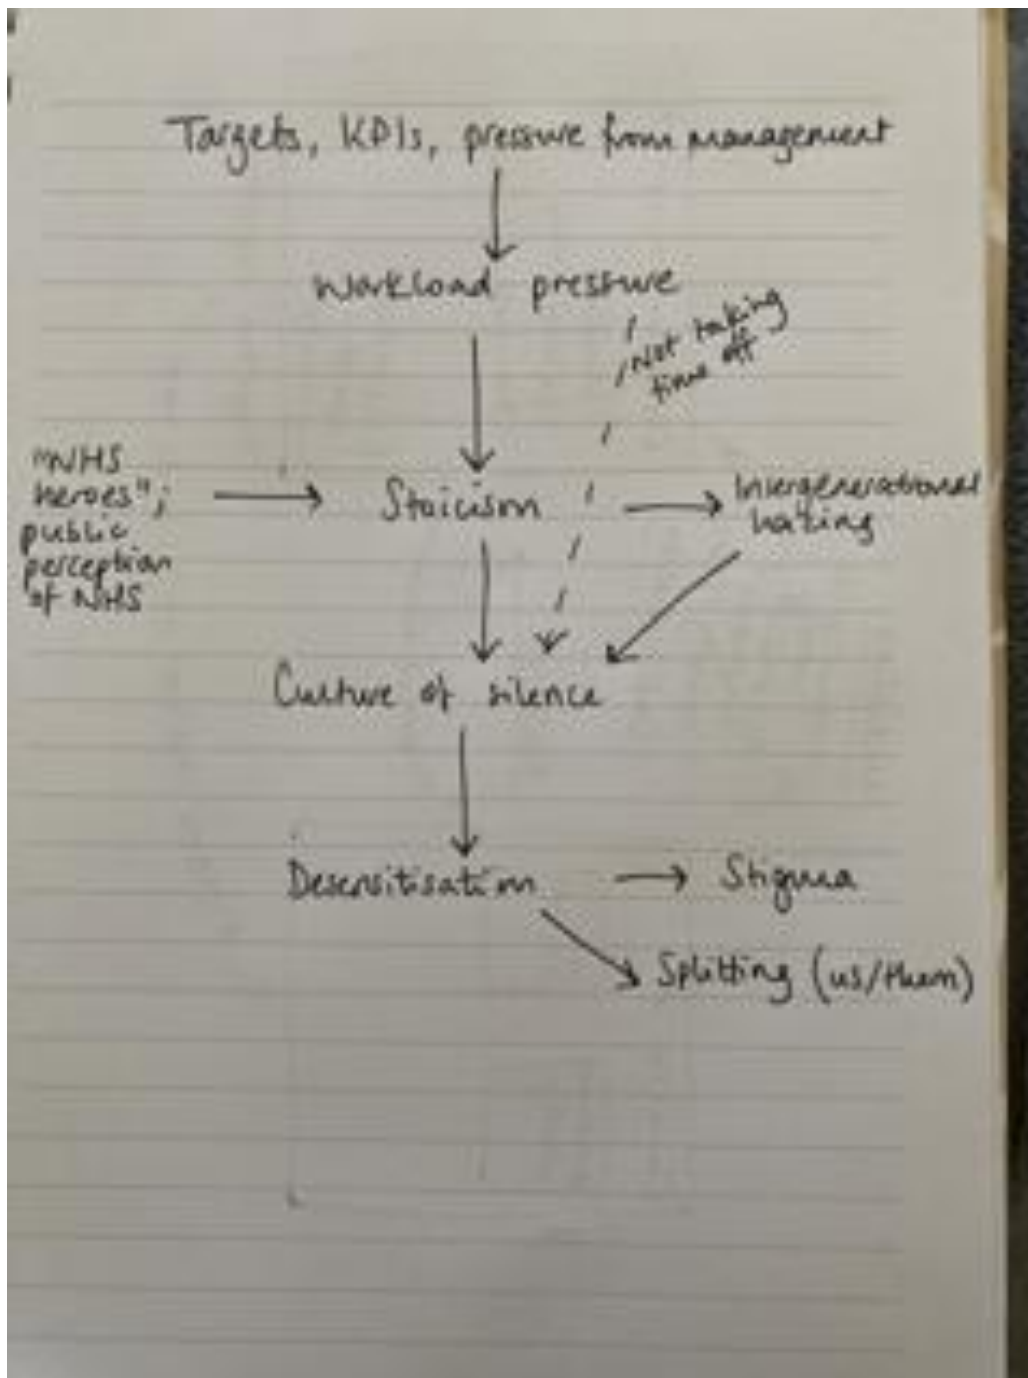 Targets, KPIs, pressure from management
Workload pressure
Not taking
time off
"NHS
heroes";
public
perception
of NHS
Stoicism
Intergenerational
hating
Culture of silence
Desensitisation
Stigma
Splitting (us/them)